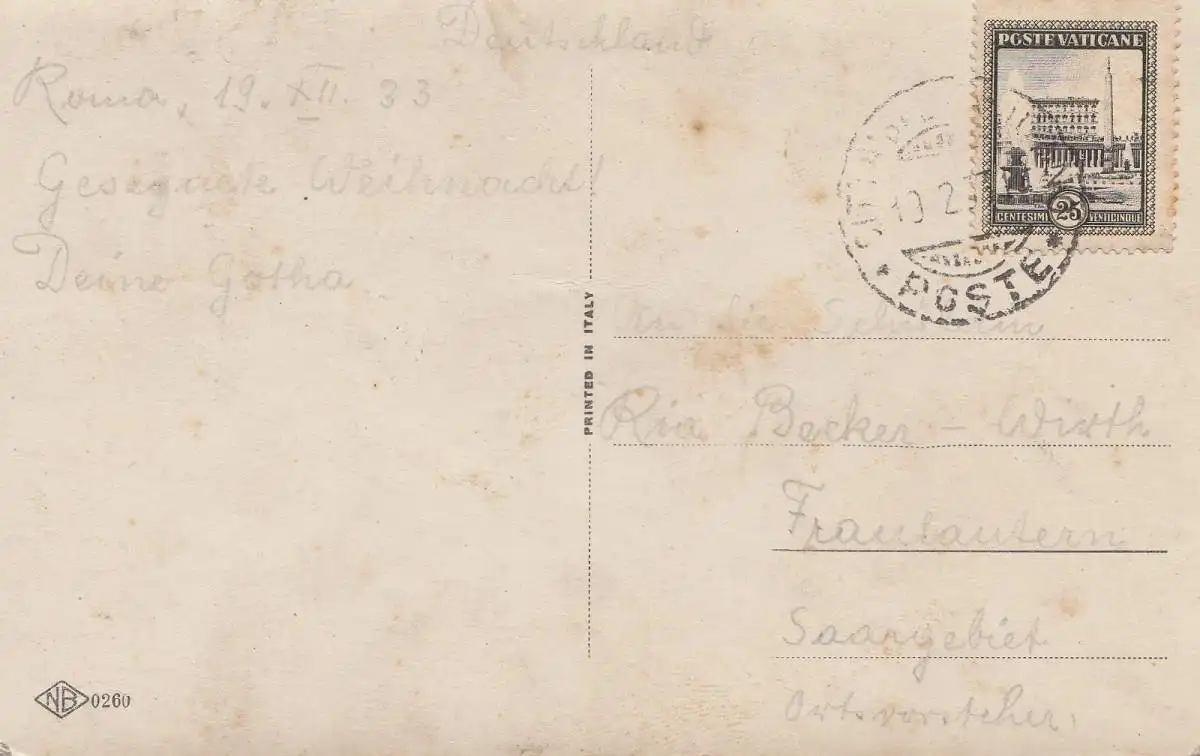 Deutschland
Roma, 19. XII. 33
Gesegnete Weihnacht!
Deine Gotha
POSTE VATICANE
CENTESIMI 25 VENTICINQUE
POSTE
PRINTED IN ITALY
An die
Ria Becker - Wirth
Fraulautern
Saargebiet
Ortsvorsteher
NB 0260